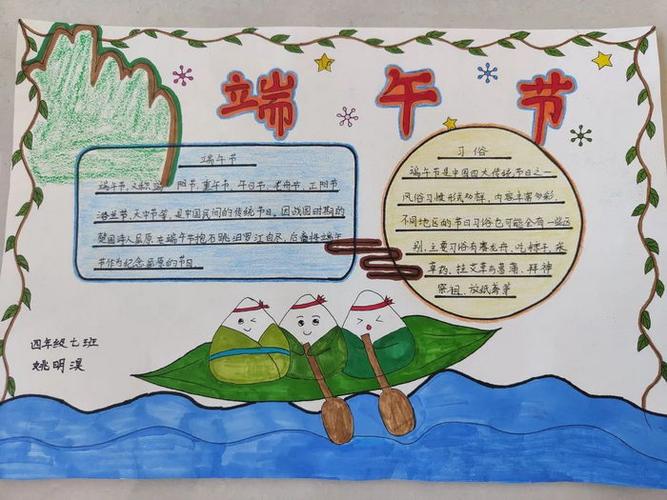 端午节
端午节
端午节,又称端 阳节,重午节,午日节,龙舟节,正阳节
浴兰节,天中节等,是中国民间的传统节日。因战国时期的
楚国诗人屈原在端午节抱石跳汨罗江自尽,后 将端午
节作为纪念屈原的节日
习俗
端午节是中国四大传统节日之一
风俗习惯形式多样,内容丰富多彩,
不同地区的节日习俗也可能会有一些区
别,主要习俗有赛龙舟、吃粽子、采
草药、挂艾草与菖蒲、拜神
祭祖、放纸鸢等
四年级七班
姚明淏